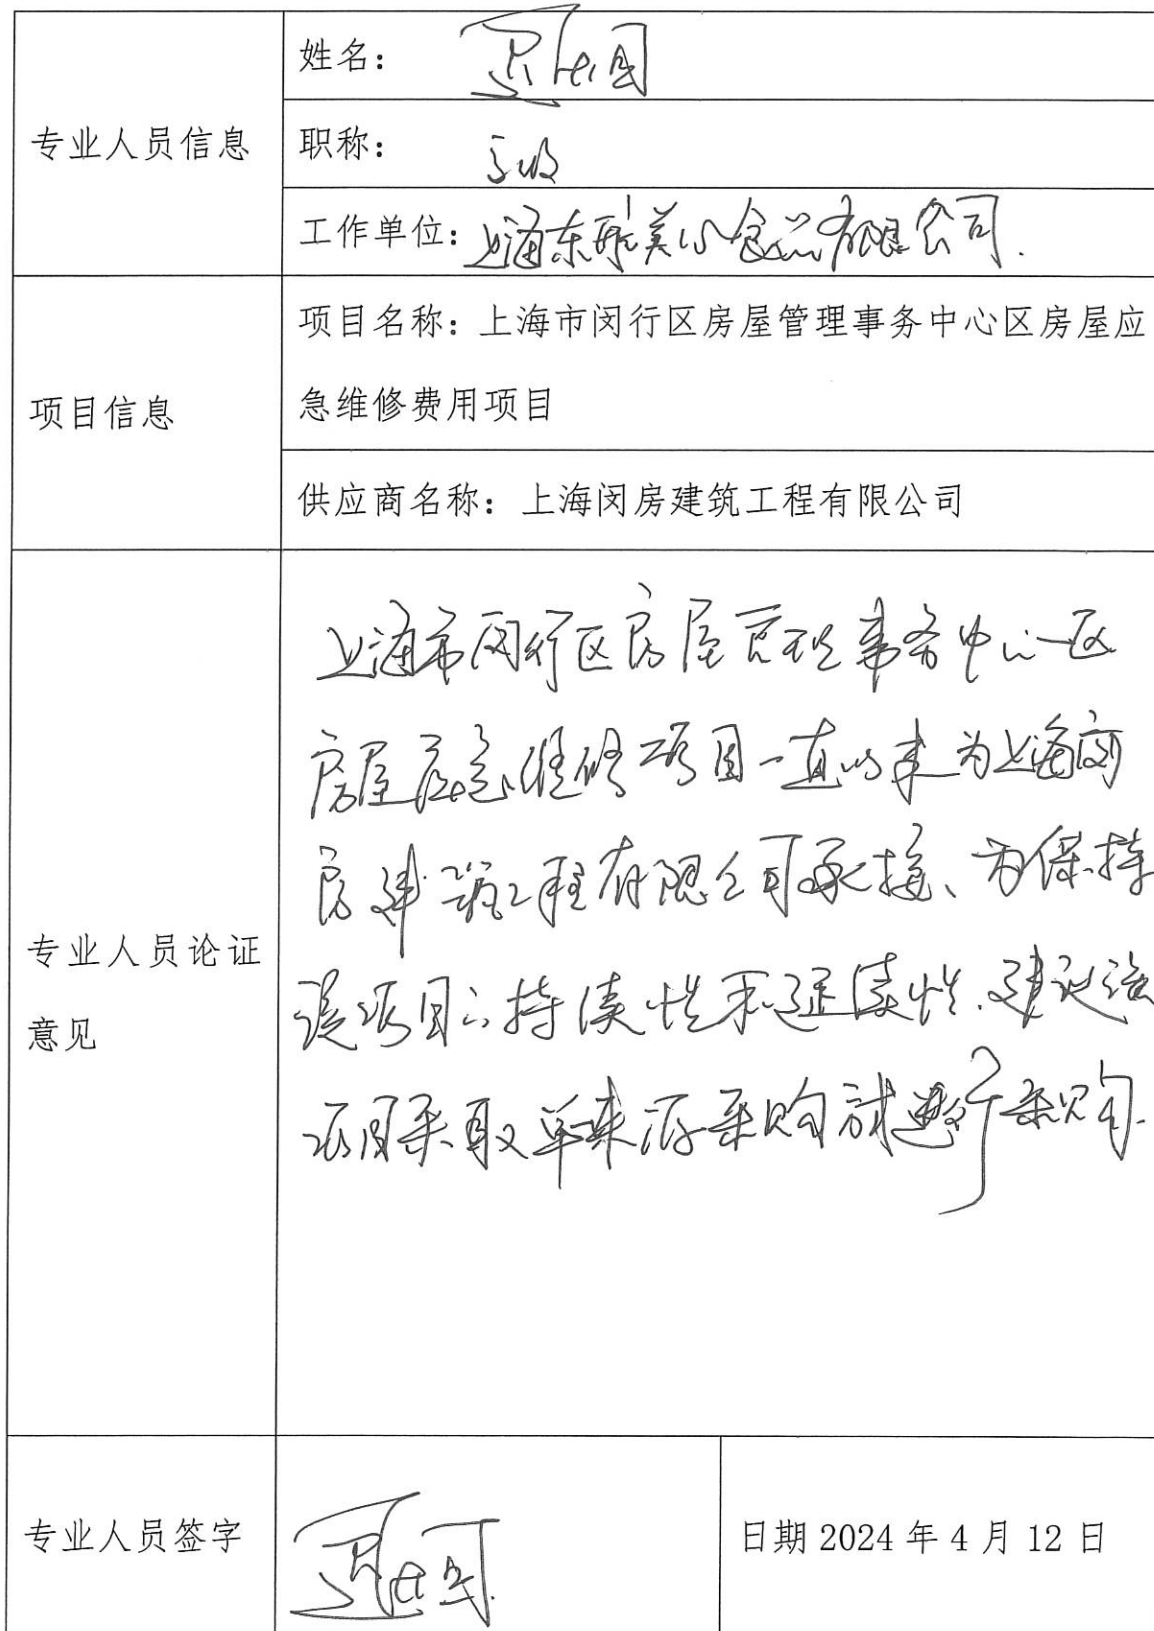 专业人员信息
姓名：
职称：高级
工作单位：上海东 食品有限公司.
项目信息
项目名称：上海市闵行区房屋管理事务中心区房屋应
急维修费用项目
供应商名称：上海闵房建筑工程有限公司
专业人员论证
意见
上海市闵行区房屋管理事务中心区
房屋应急维修项目一直以来为上海闵
房建筑工程有限公司承接、为保持
该项目的持续性和延续性.建议该
项目采取单一来源采购 进行采购.
专业人员签字
日期 2024 年 4 月 12 日